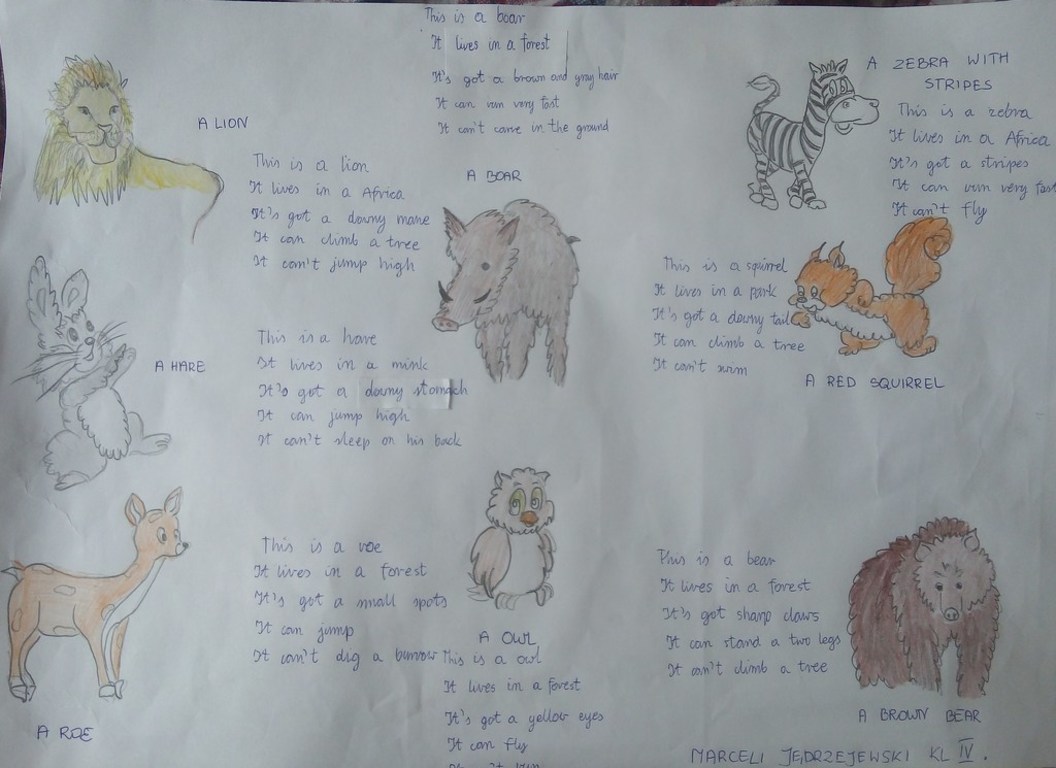 This is a boar
It lives in a forest
It's got a brown and gray hair
It can run very fast
It can't carve in the ground
A BOAR
A LION
This is a lion
It lives in a Africa
It's got a downy mane
It can climb a tree
It can't jump high
A ZEBRA WITH
STRIPES
This is a zebra
It lives in a Africa
It's got a stripes
It can run very fast
It can't fly
This is a squirrel
It lives in a park
It's got a downy tail
It can climb a tree
It can't swim
A RED SQUIRREL
A HARE
This is a hare
It lives in a mink
It's got a downy stomach
It can jump high
It can't sleep on his back
This is a roe
It lives in a forest
It's got a small spots
It can jump
It can't dig a burrow
A ROE
A OWL
This is a owl
It lives in a forest
It's got a yellow eyes
It can fly
This is a bear
It lives in a forest
It's got sharp claws
It can stand a two legs
It can't climb a tree
A BROWN BEAR
MARCELI JĘDRZEJEWSKI KL IV.